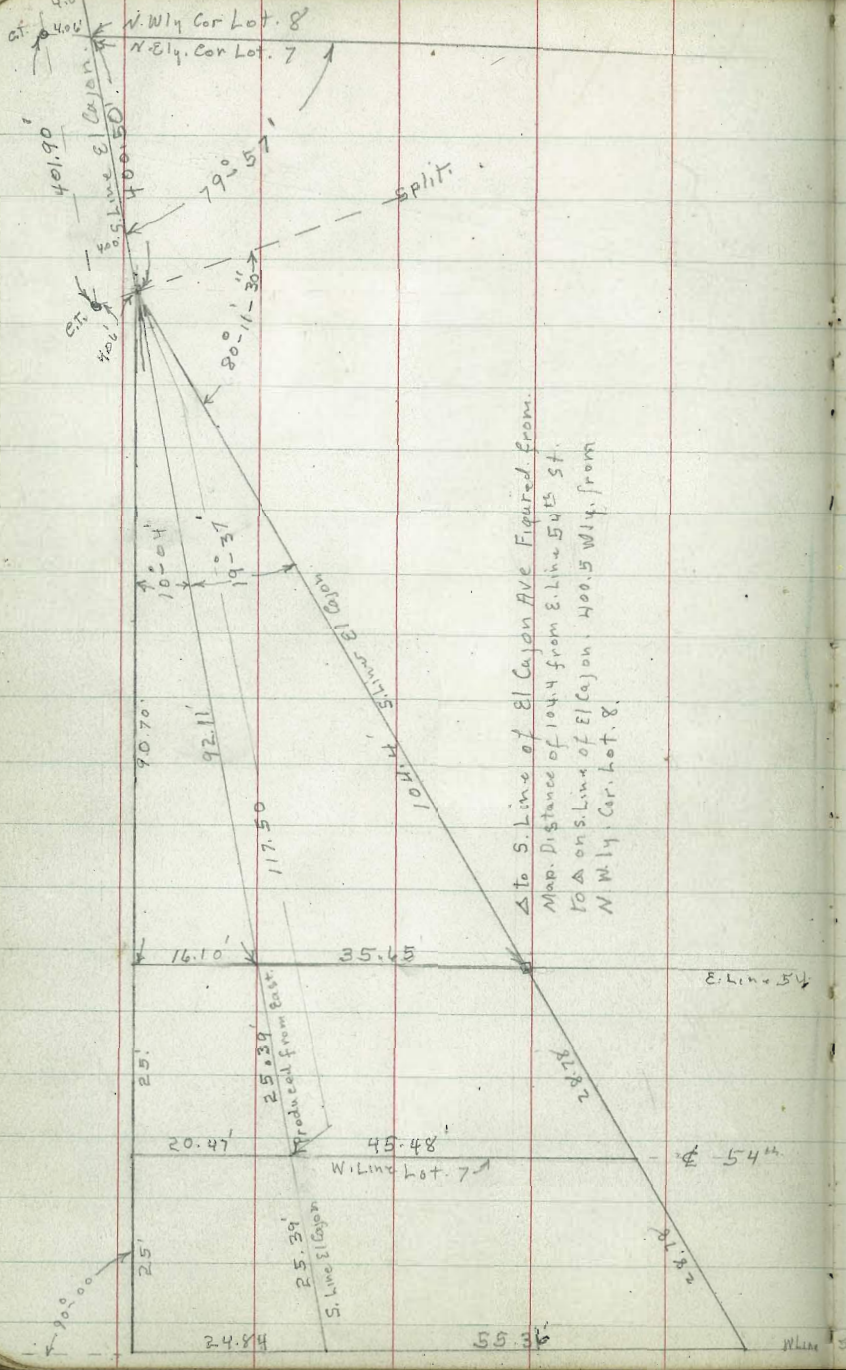 4.06'
C.T.
N.Wly Cor Lot. 8
N.Ely. Cor Lot. 7
401.90'
S. Line El Cajon.
400.50'
79°-57'
Split.
C.T.
4.06'
80°-11'-30"
10°-04'
19°-37'
S. Line El Cajon
90.70'
92.11'
104.4'
117.50
Δ to S. Line of El Cajon Ave Figured from.
Map. Distance of 104.4 from E. Line 54th St.
to Δ on S. Line of El Cajon. 400.5 Wly. from
N.Wly. Cor. Lot. 8.
16.10'
35.45
E. Line 54
25'
25.39'
Produced from East.
28.78
20.47'
45.48'
W. Line Lot. 7
℄ 54th
90°-00'
25'
25.39'
S. Line El Cajon
28.78
24.84
55.36'
W Line